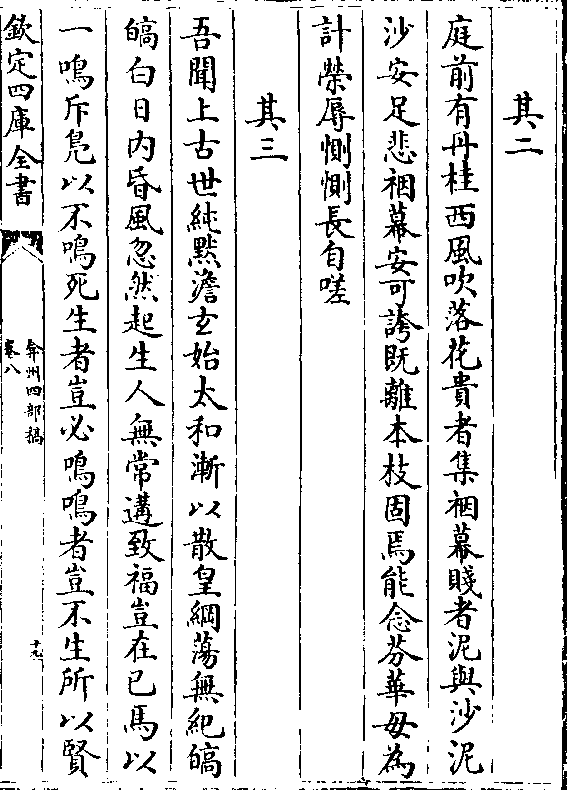 其二
庭前有丹桂西風吹落花貴者集裀幕賤者泥與沙泥
沙安足悲裀幕安可誇既離本枝固焉能念芬華毋為
計榮辱惻惻長自嗟
其三
吾聞上古世純黙澹玄始太和漸以散皇綱蕩無紀皜
皜白日内昏風忽然起生人無常遘致福豈在已馬以
一鳴斥鳧以不鳴死生者豈必鳴鳴者豈不生所以賢
欽定四庫全書
弇州四部稿
卷八
十九